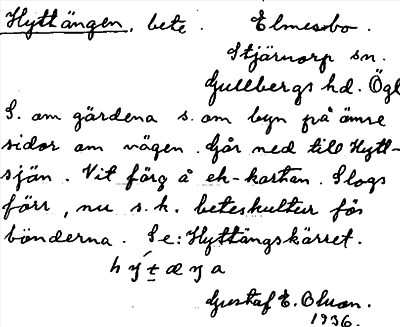 Hyttängen, bete. Elmesbo.
Stjärnorp sn.
Gullbergs hd. Ögl
S. om gärdena s. om byn på ömse
sidor om vägen. Går ned till Hytt-
sjön. Vit färg å ek-kartan. Slogs
förr, nu s.k. beteskultur för
bönderna. Se: Hyttängskärret.
Gustaf E. Olsson.
1936.